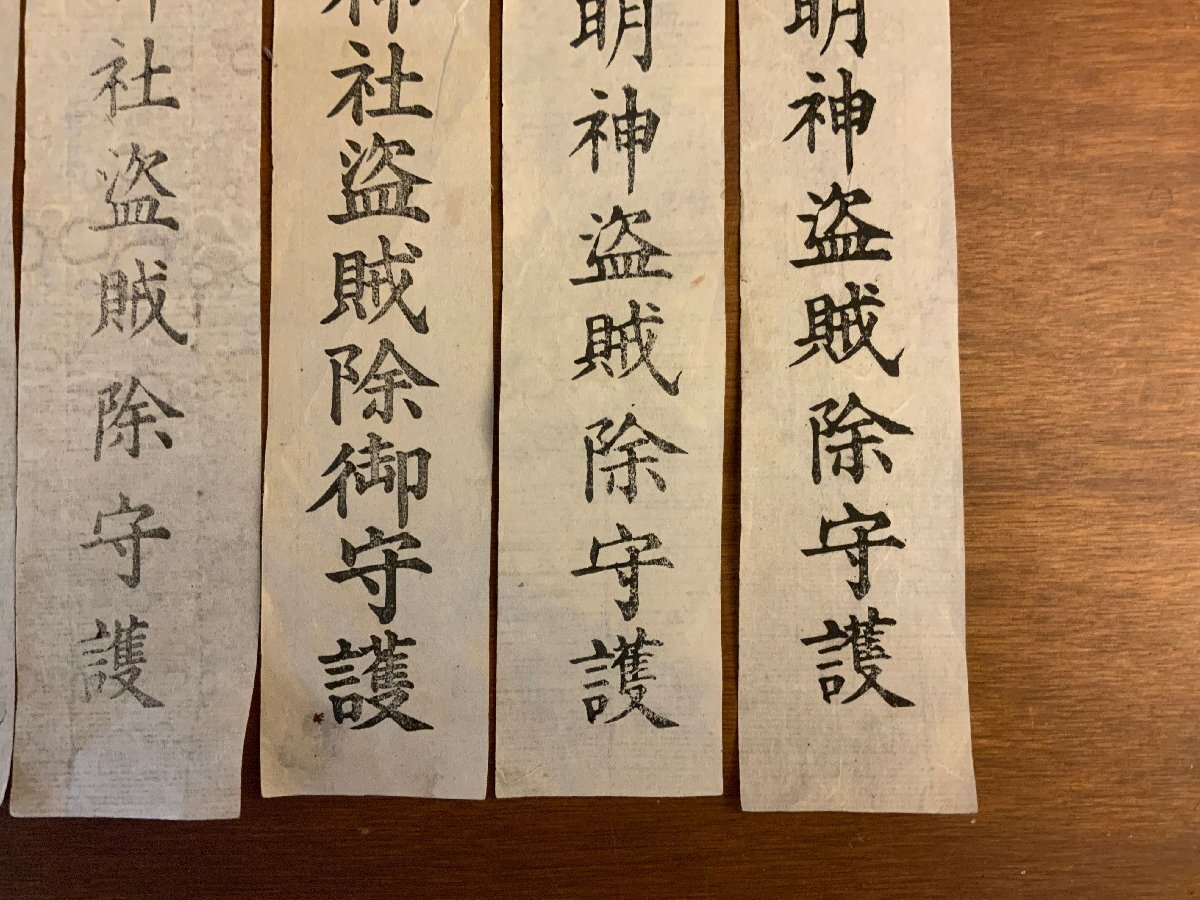 明神盗賊除守護
明神盗賊除守護
神社盗賊除御守護
社盗賊除守護